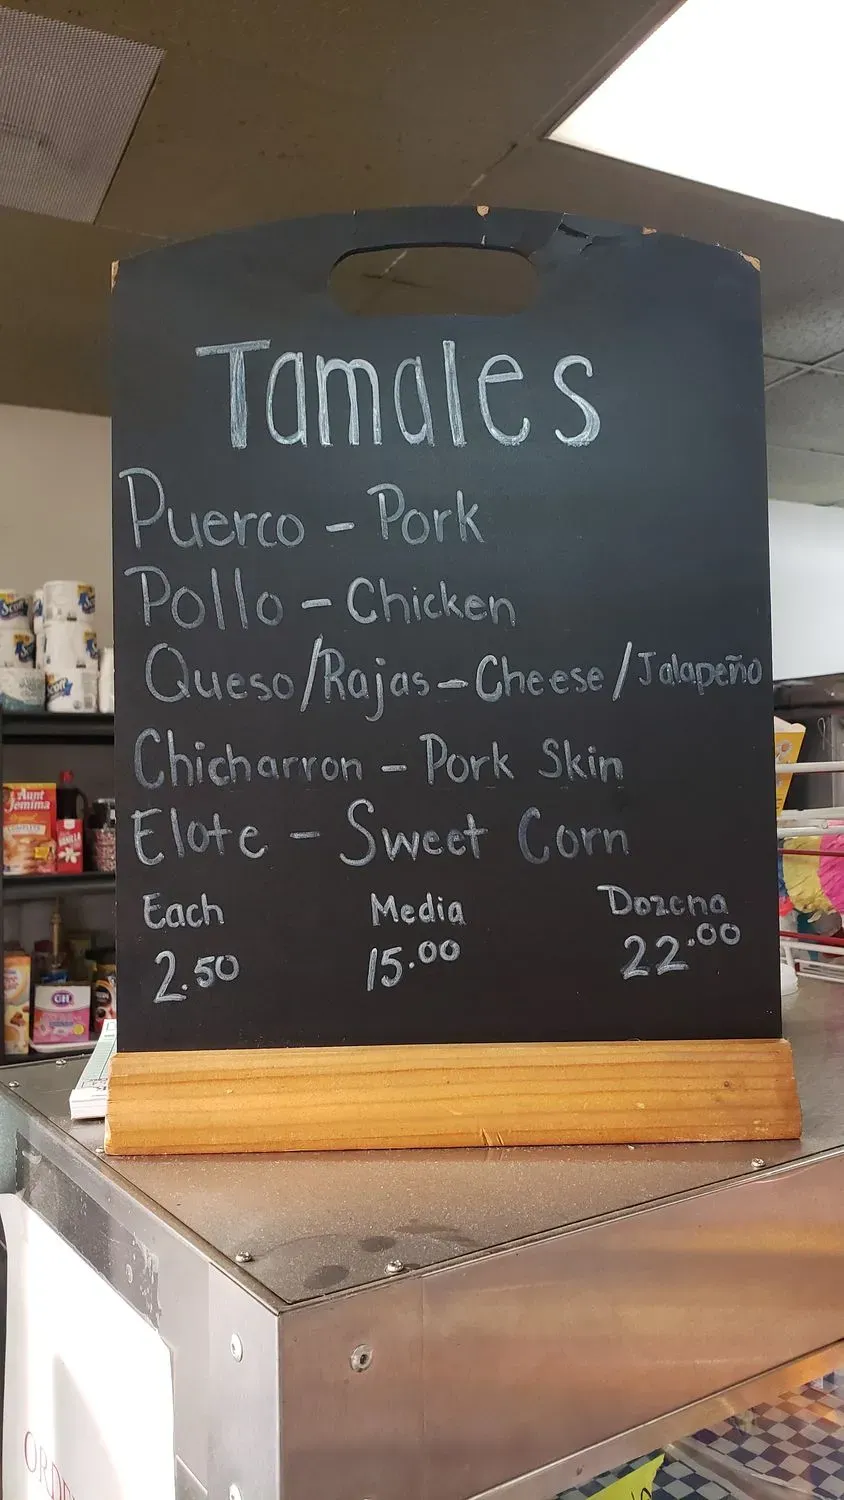 Tamales
Puerco - Pork
Pollo - Chicken
Queso/Rajas - Cheese/Jalapeño
Chicharron - Pork Skin
Elote - Sweet Corn
Each Media Dozena
2.50 15.00 22.00
Scott
Aunt Jemima
COMPLETE
VANILLA
GH
ORDE